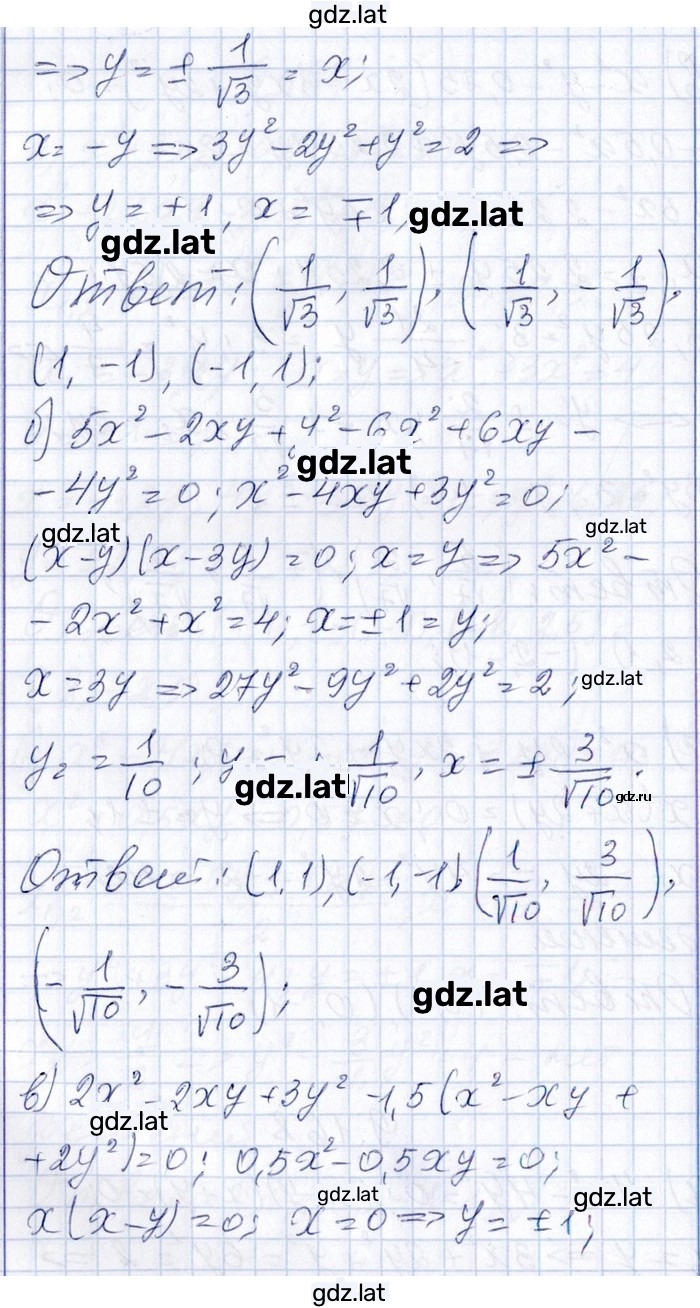 gdz.lat
=> y = ± 1/√3 = x;
x = -y => 3y² - 2y² + y² = 2 =>
=> y = +1, x = ∓1,
gdz.lat
gdz.lat
Ответ: (1/√3, 1/√3), (-1/√3, -1/√3),
(1, -1), (-1, 1);
б) 5x² - 2xy + y² - 6x² + 6xy -
gdz.lat
- 4y² = 0; x² - 4xy + 3y² = 0;
gdz.lat
gdz.lat
(x-y)(x-3y) = 0; x = y => 5x² -
- 2x² + x² = 4; x = ±1 = y;
x = 3y => 27y² - 9y² + 2y² = 2;
gdz.lat
y² = 1/10; y 1/√10, x = ± 3/√10.
gdz.lat
gdz.ru
Ответ: (1,1), (-1,-1), (1/√10, 3/√10),
(-1/√10, -3/√10);
gdz.lat
в) 2x² - 2xy + 3y² - 1,5(x² - xy +
gdz.lat
+ 2y²) = 0; 0,5x² - 0,5xy = 0;
gdz.lat
gdz.lat
x(x-y) = 0; x = 0 => y = ±1;
gdz.lat